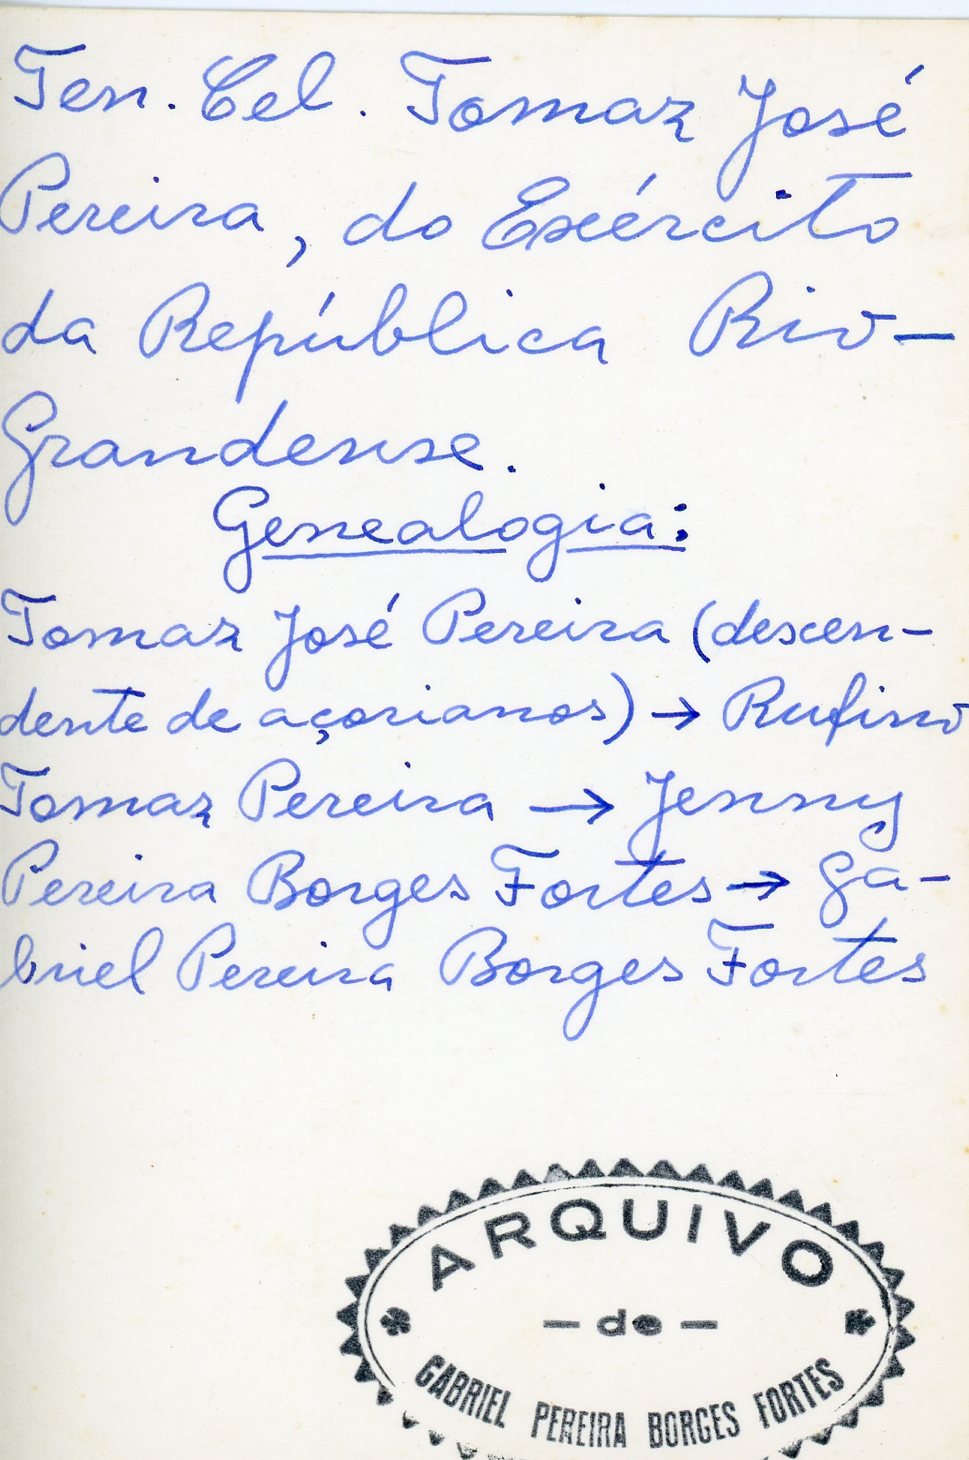 Ten. Cel. Tomaz José
Pereira, do Exército
da República Rio-
Grandense.
Genealogia:
Tomaz José Pereira (descen-
dente de açorianos) → Rufino
Tomaz Pereira → Jenny
Pereira Borges Fortes → Ga-
briel Pereira Borges Fortes
ARQUIVO
- de -
GABRIEL PEREIRA BORGES FORTES